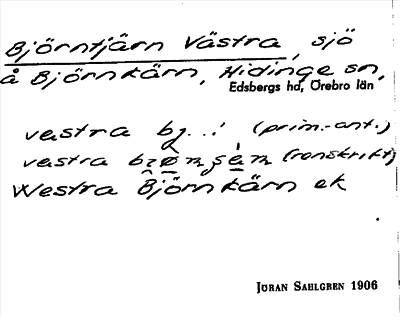 Björntjärn Västra, sjö
å Björnkärn, Hidinge sn,
Edsbergs hd, Örebro län
vastra bj..: (prim.-ant.)
vastra (ronskrikt)
Westra Björnkärn ek
JÖRAN SAHLGREN 1906